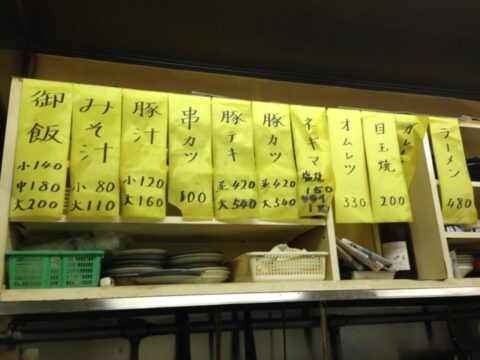 御飯
小140
中180
大200
みそ汁
小 80
大110
豚汁
小120
大160
串カツ
100
豚テキ
並420
大540
豚カツ
並420
大540
ネギマ
塩焼
150
オムレツ
330
目玉焼
200
ラーメン
480